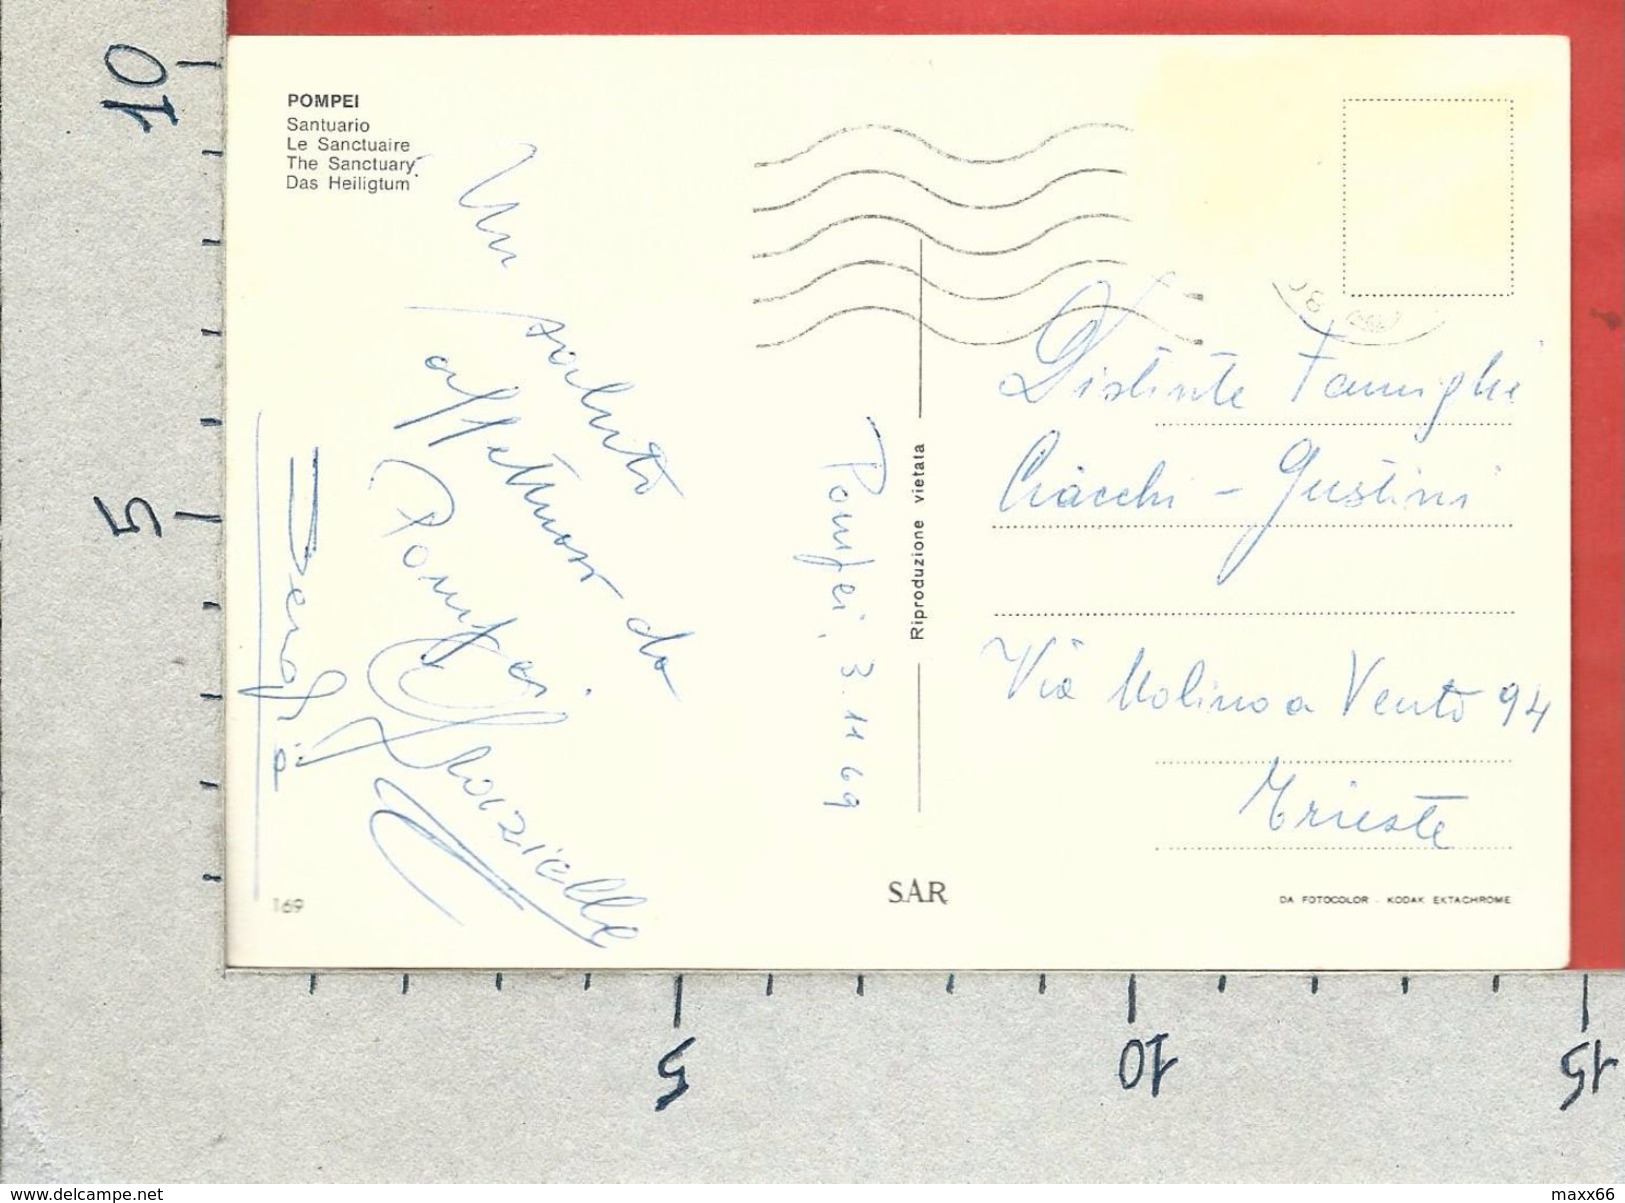 POMPEI
Santuario
Le Sanctuaire
The Sanctuary
Das Heiligtum
Un
saluto
affettuoso da
Pompei
Pompei, 3.11 69
Riproduzione vietata
Distinte Famiglie
Ciacchi - Giustini
Via Molino a Vento 94
Trieste
169
SAR
DA FOTOCOLOR - KODAK EKTACHROME
10
5
5
10
15
www.delcampe.net
maxx66